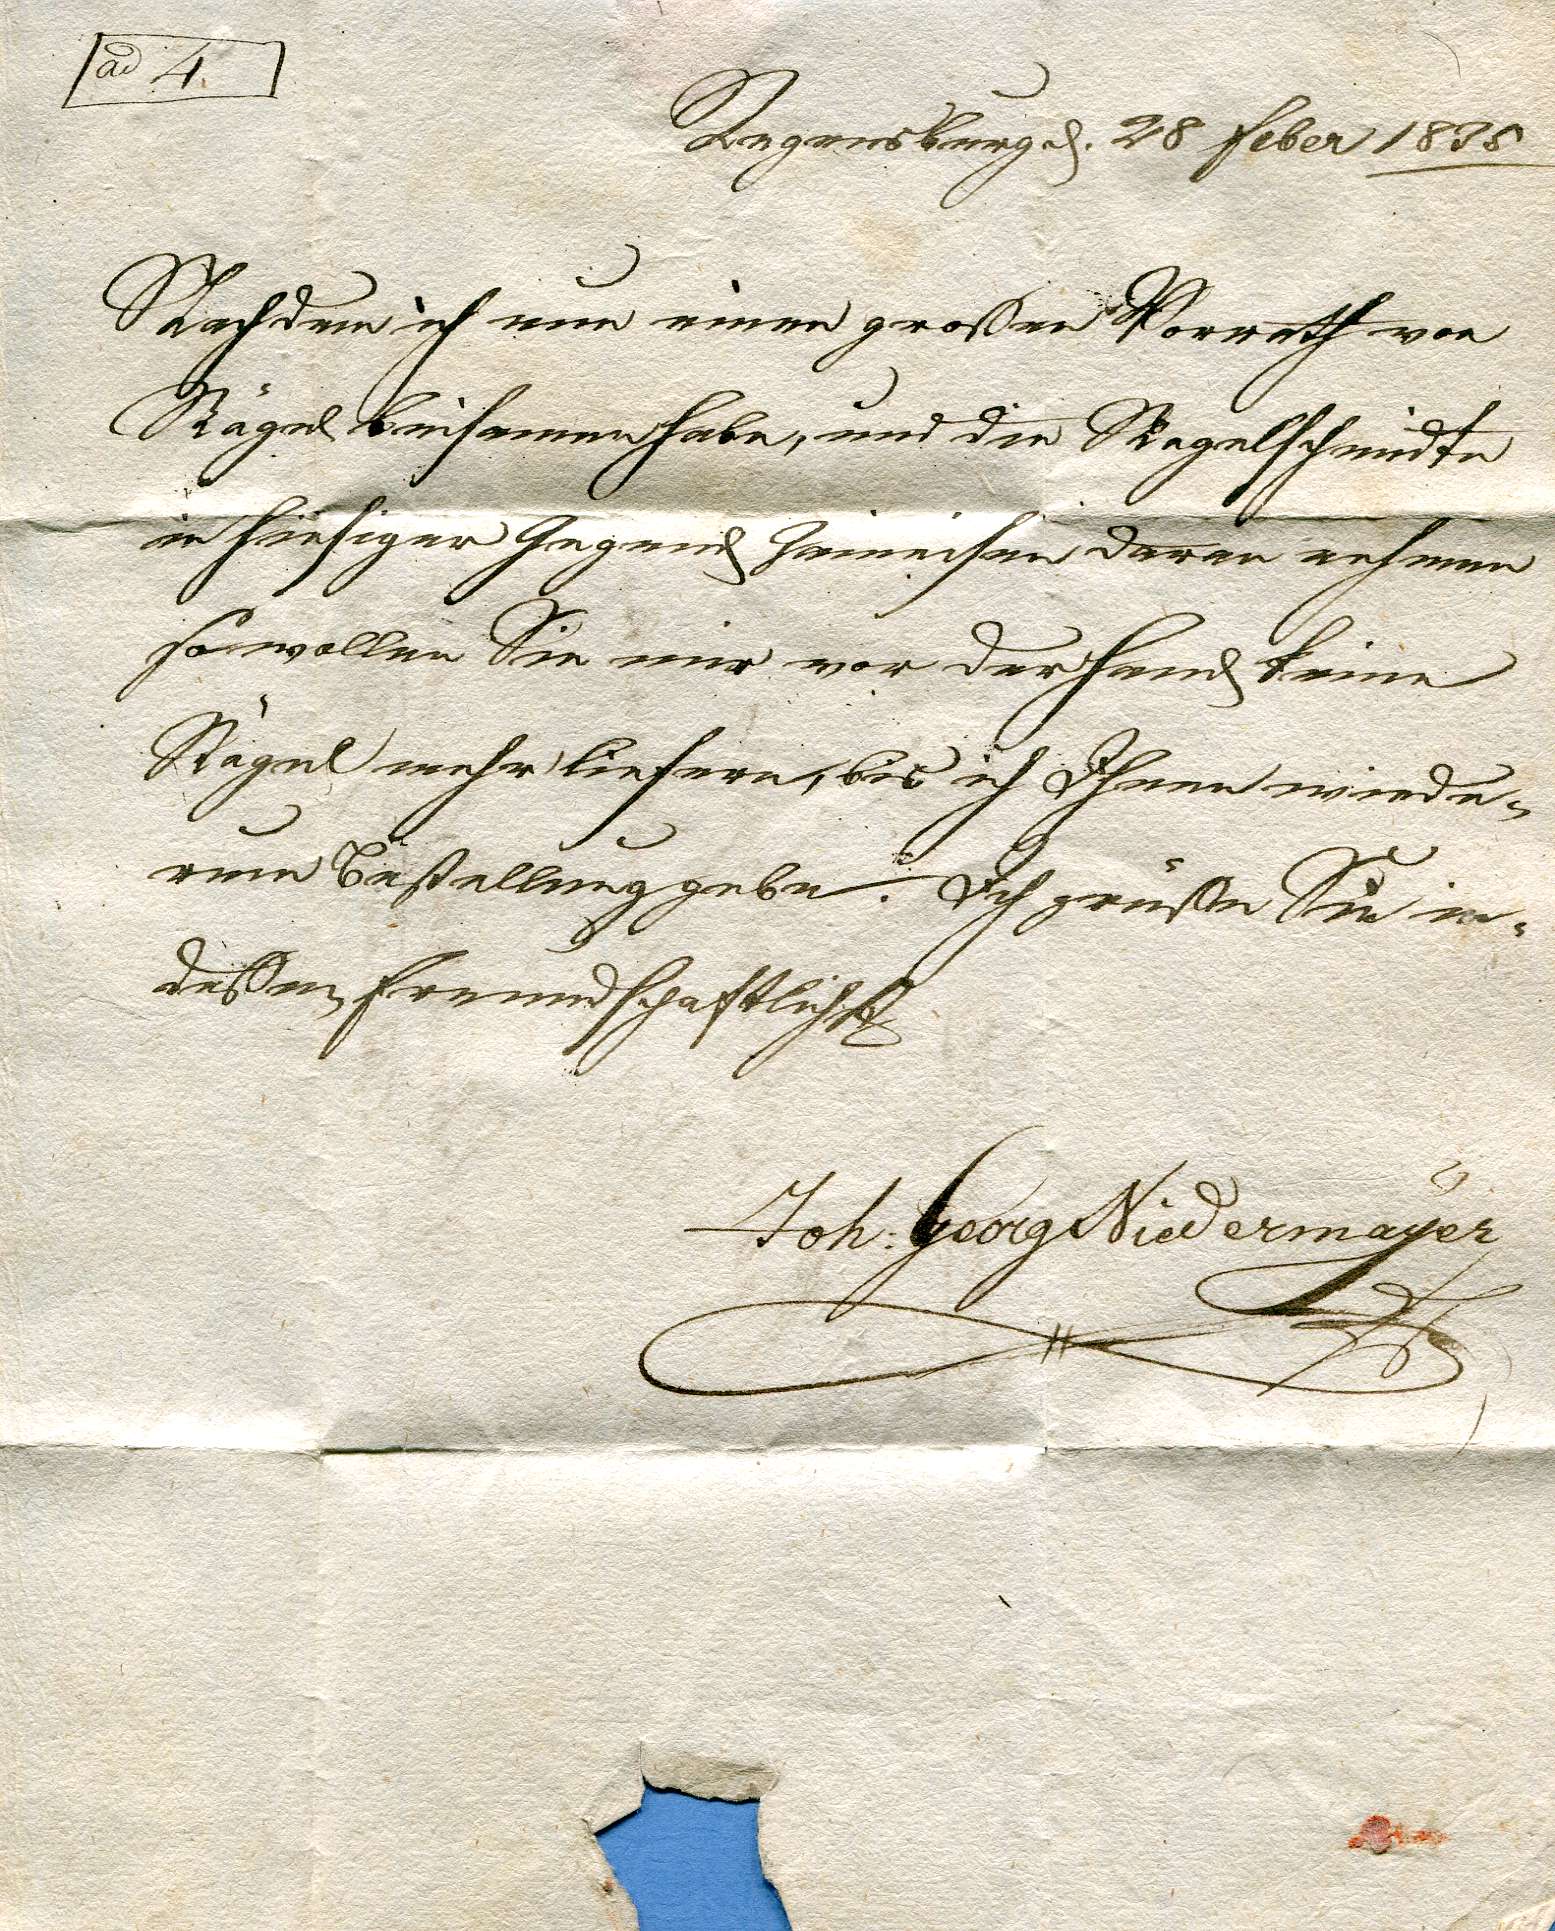 ad 4.
Regensburg d. 28 Feber 1835
Nachdem ich nun einen großen Vorrath von
Nägel beisamen habe, und die Nagelschmidte
in hiesiger Gegend Zaineisen daran nehmen
so wollen Sie mir vor der Hand keine
Nägel mehr liefern, bis ich Ihnen wiede-
rum Bestellung gebe. Ich grüße Sie in-
dessen freundschaftlichst
Joh: Georg Niedermayer